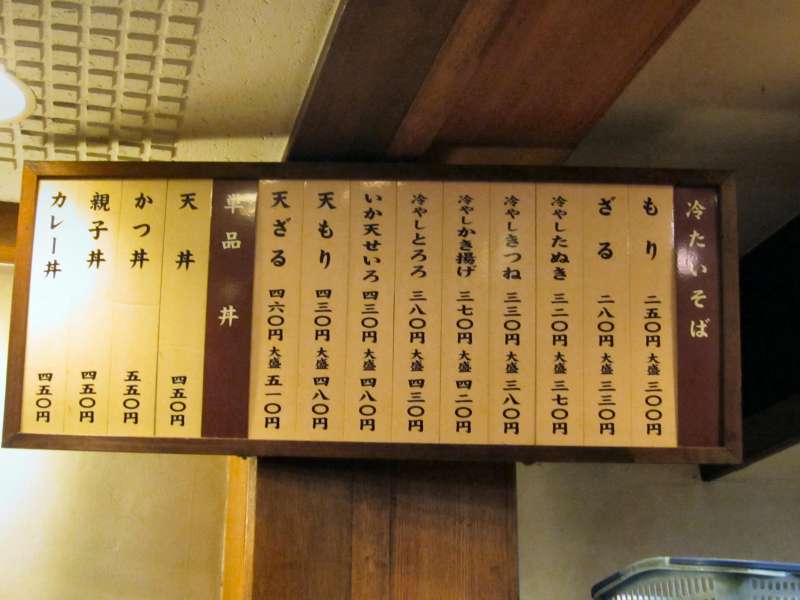 冷たいそば
もり 二五〇円 大盛 三〇〇円
ざる 二八〇円 大盛 三三〇円
冷やしたぬき 三二〇円 大盛 三七〇円
冷やしきつね 三三〇円 大盛 三八〇円
冷やしかき揚げ 三七〇円 大盛 四二〇円
冷やしとろろ 三八〇円 大盛 四三〇円
いか天せいろ 四三〇円 大盛 四八〇円
天もり 四三〇円 大盛 四八〇円
天ざる 四六〇円 大盛 五一〇円
単品丼
天丼 四五〇円
かつ丼 五五〇円
親子丼 四五〇円
カレー丼 四五〇円